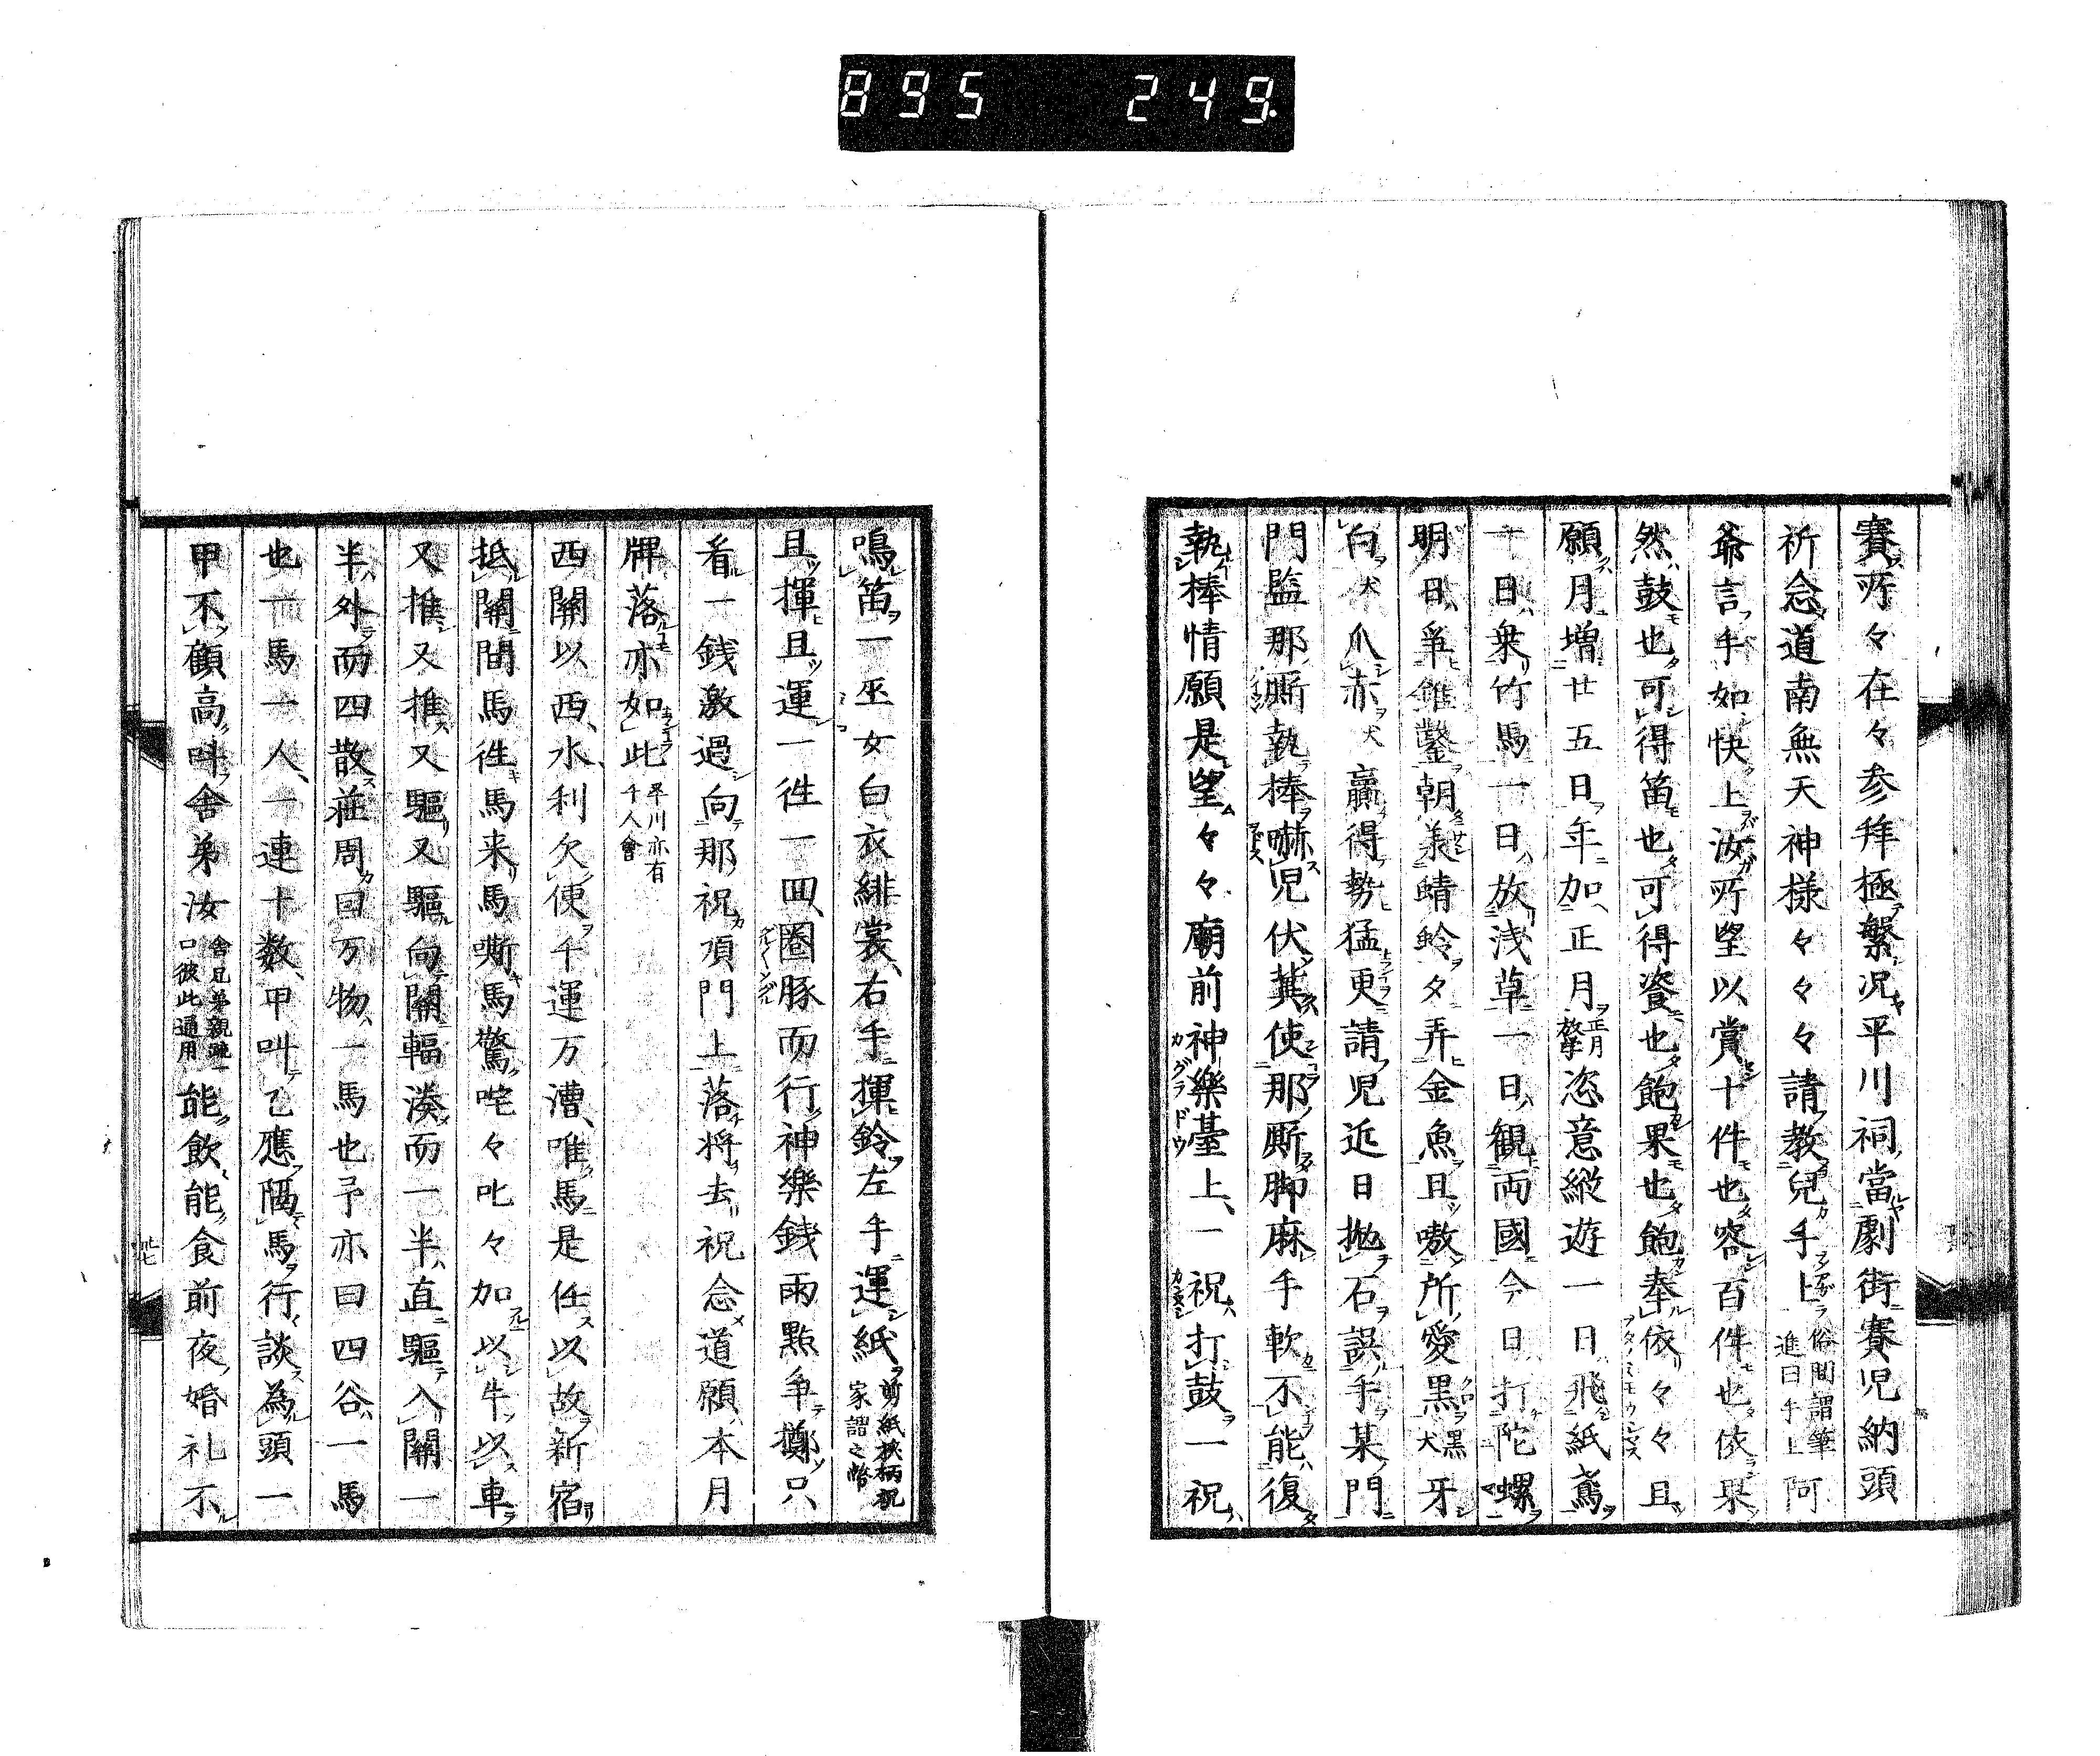 895 249
賽所々在々参拜極繁況平川祠當劇街賽児納頭
祈念道南無天神様々々々請教兒手上俗間謂筆進曰手上阿
爺言手如快上汝所望以賞十件也容百件也依果
然鼓也可得笛也可得瓷也飽果也飽奉依々々且
願月増廿五日年加正月恣意縱遊一日飛紙鳶
一日乗竹馬一日放浅草一日観両國今日打陀螺
明日爭錐鑿朝羨蜻蛉夕弄金魚且嗷所愛黒黒犬牙
白犬爪赤犬贏得勢猛更請児近日抛石誤手某門
門監那厮執捧嚇児伏冀使那厮脚麻手軟不能復
執棒情願是望々々廟前神樂臺上一祝打鼓一祝
カグラドウ
鳴笛一巫女白衣緋裳右手揮鈴左手運紙剪紙挾柄祝家謂之幣
且揮且運一徃一回圈豚而行神樂銭雨點争擲只
看一銭激過向那祝項門上落将去祝念道願本月
牌落亦如此平川亦有千人會
西關以西水利欠便千運万漕唯馬是任以故新宿
抵關間馬徃馬来馬嘶馬驚咤々叱々加以牛以車
又推又推又驅又驅向關輻湊而一半直驅入關一
半外而四散荘周曰万物一馬也予亦曰四谷一馬
也一馬一人一連十数甲叫乙應隔馬行談為頭一
甲不顧高叫舍弟汝舍兄弟親疎一口彼此通用能飲能食前夜婚礼不